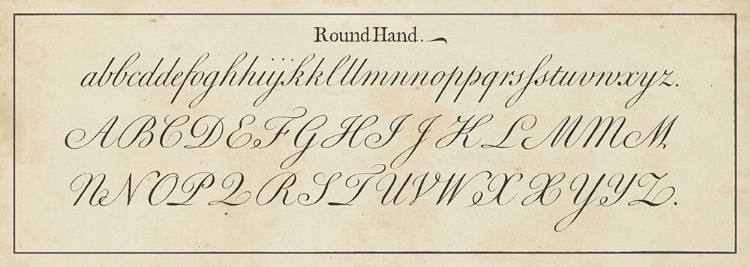 Round Hand.
abbcddefoghhiijkklllmnnnoppqrsſstuvwxyz.
ABCDEFGHIJKLMMM.
NNOPQRSTUVWXXYYZ.